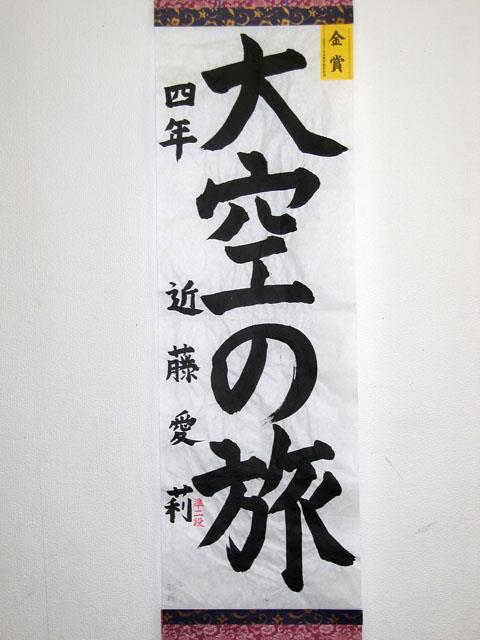 金賞
大空の旅
四年 近藤愛莉
準二段